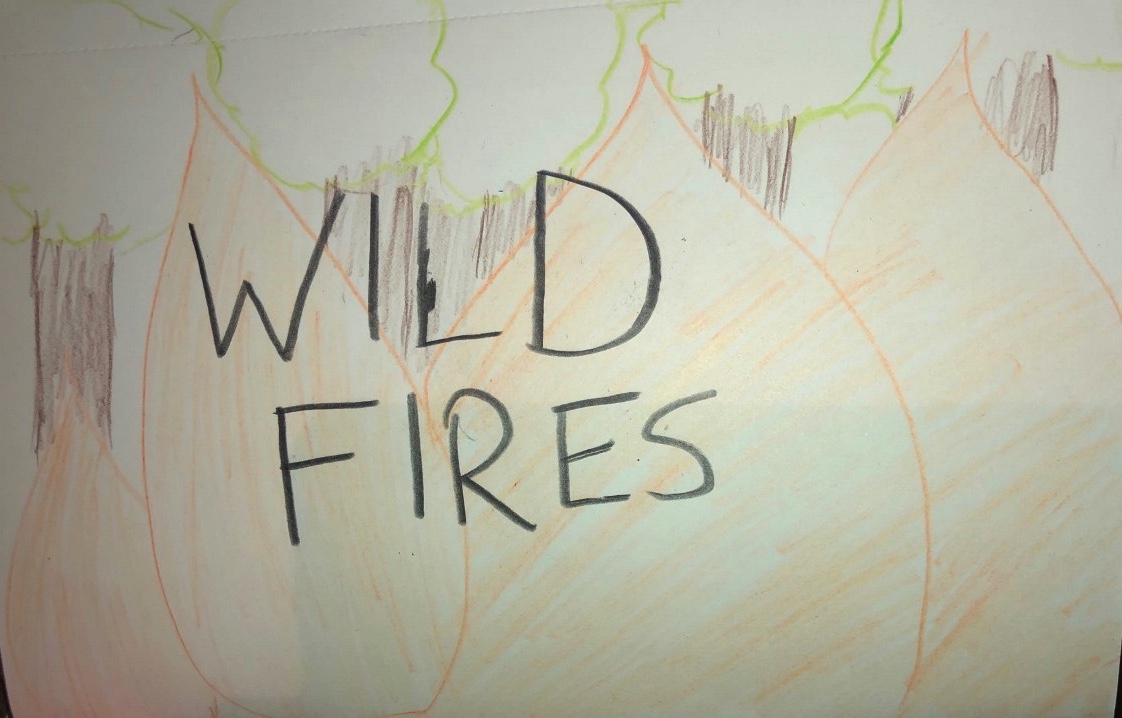 WILD
FIRES